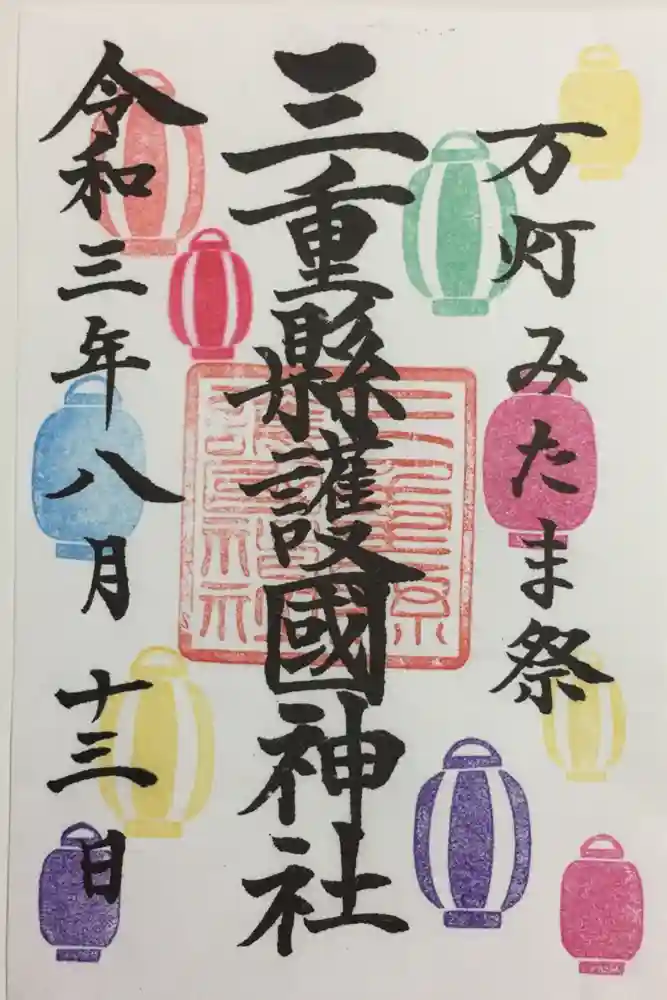 万灯みたま祭
三重縣護國神社
令和三年八月十三日